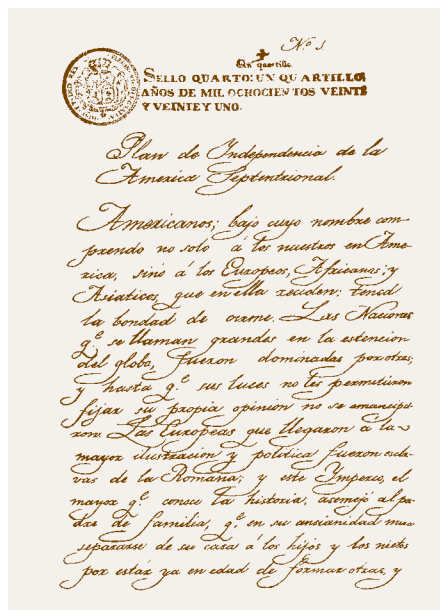 N.º 1
Un quartillo.
SELLO QUARTO: UN QUARTILLO,
AÑOS DE MIL OCHOCIENTOS VEINTE
Y VEINTE Y UNO.
Plan de Independencia de la
America Septentrional.
Americanos; bajo cuyo nombre com-
prendo no solo á los nuestros en Ame-
rica, sinó á los Europeos, Africanos; y
Asiaticos, que en ella reciden: tened
la bondad de oirme. Las Naciones
q.e se llaman grandes en la estencion
del globo, fueron dominadas por otras;
y hasta q.e sus luces no les permitieron
fijar su propia opinion no se emancipa-
ron: Las Européas que llegaron a la
mayor ilustracion y politica fueron escla-
vas de la Romana; y este Imperio, el
mayor q.e conoce la historia, asemejó al pa-
dre de familia, q.e en su ansianidad mira
separarse de su casa á los hijos y los nietos
por estár ya en edad de formar otras, y